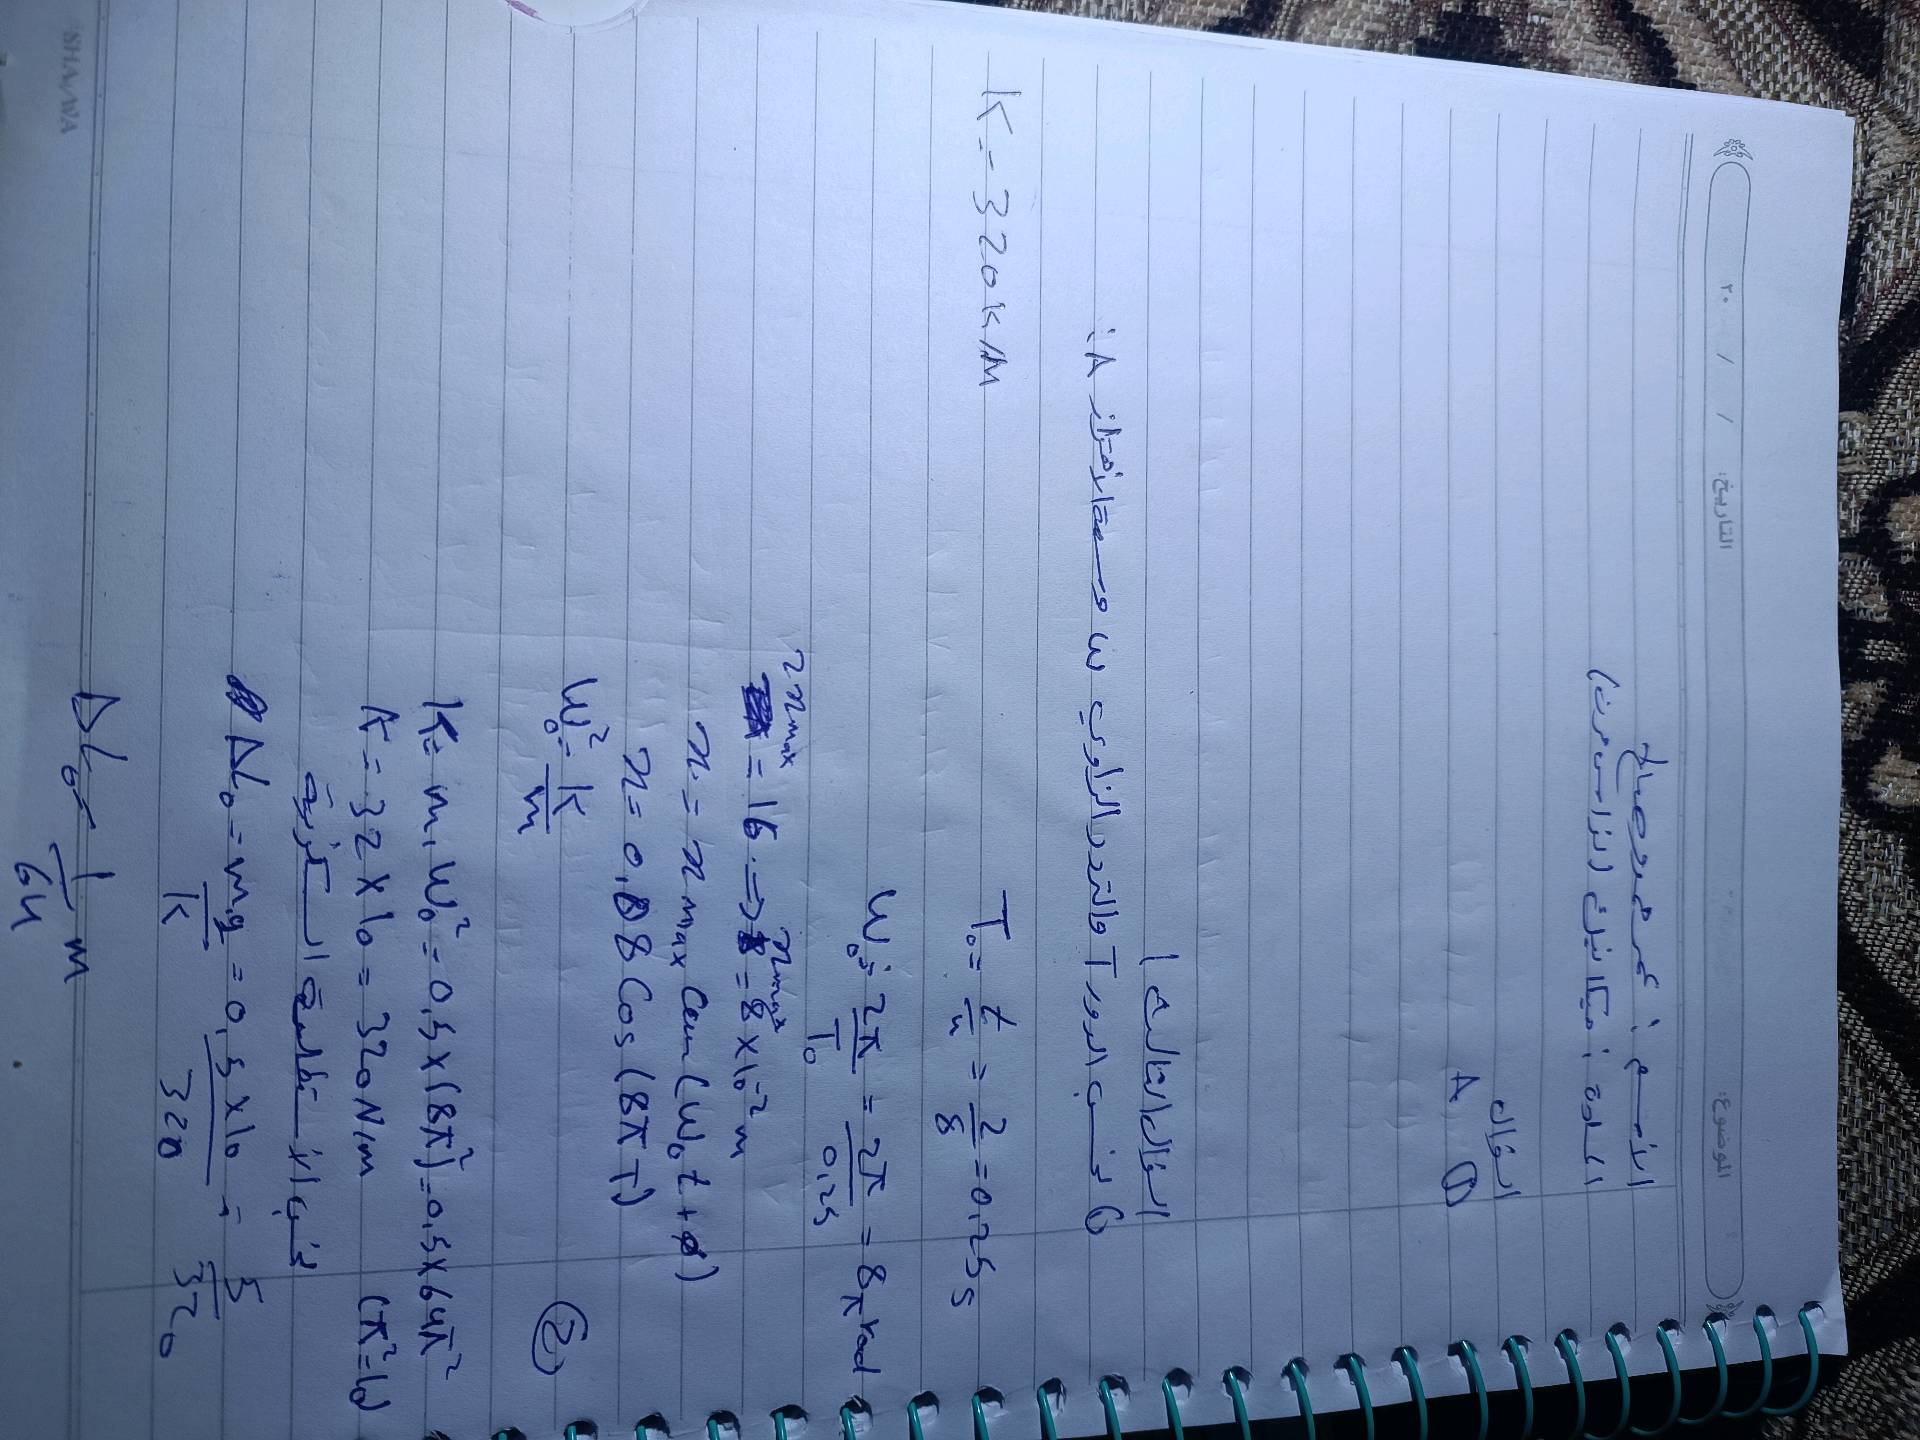 الموضوع: التاريخ: / / ٢٠
الاسم : عمر
المادة : ميكانيك (نواس مرن)
السؤال
① A
السؤال الثالث
1) نحسب الدور T والتردد الزاوي ω وسعة الاهتزاز A:
T₀ = t/n = 2/8 = 0,25 s
K = 320 K/M
ω₀ = 2π/T₀ = 2π/0,25 = 8π rad
2xmax = 16 ⇒ xmax = 8 × 10⁻² m
x = x max Cos (ω₀ t + φ)
x = 0,08 Cos (8π T)
②
ω₀² = k/m
K = m . ω₀² = 0,5 × (8π)² = 0,5 × 64π²
K = 32 × 10 = 320 N/m (π² = 10)
نحسب الاستطالة السكونية
Δl₀ = mg/K = 0,5×10/320 = 5/320
Δl₀ = 1/64 m
SHAWA